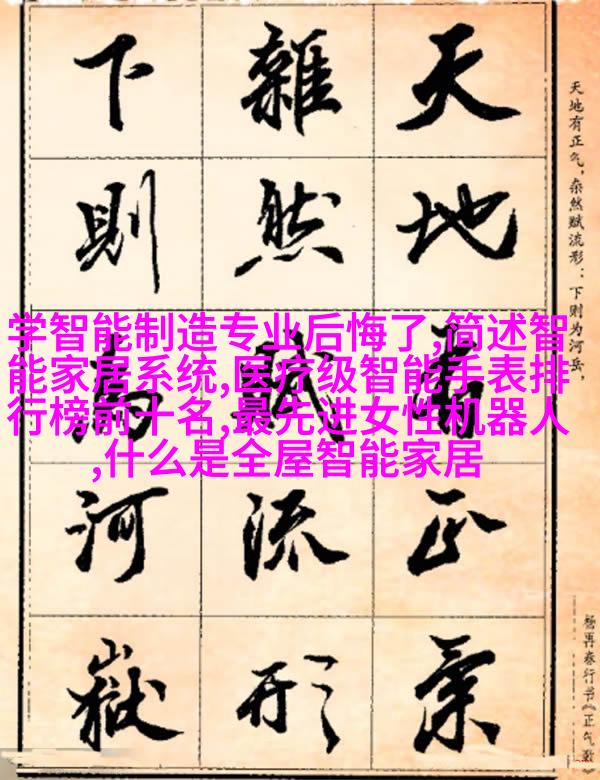 天地有正气，杂然赋流形；下则为河岳，
天地有正氣
雜然賦流形
下則為河嶽
学智能制造专业后悔了,简述智
能家居系统,医疗级智能手表排
行榜前十名,最先进女性机器人
,什么是全屋智能家居
杨再春行书《正气歌》